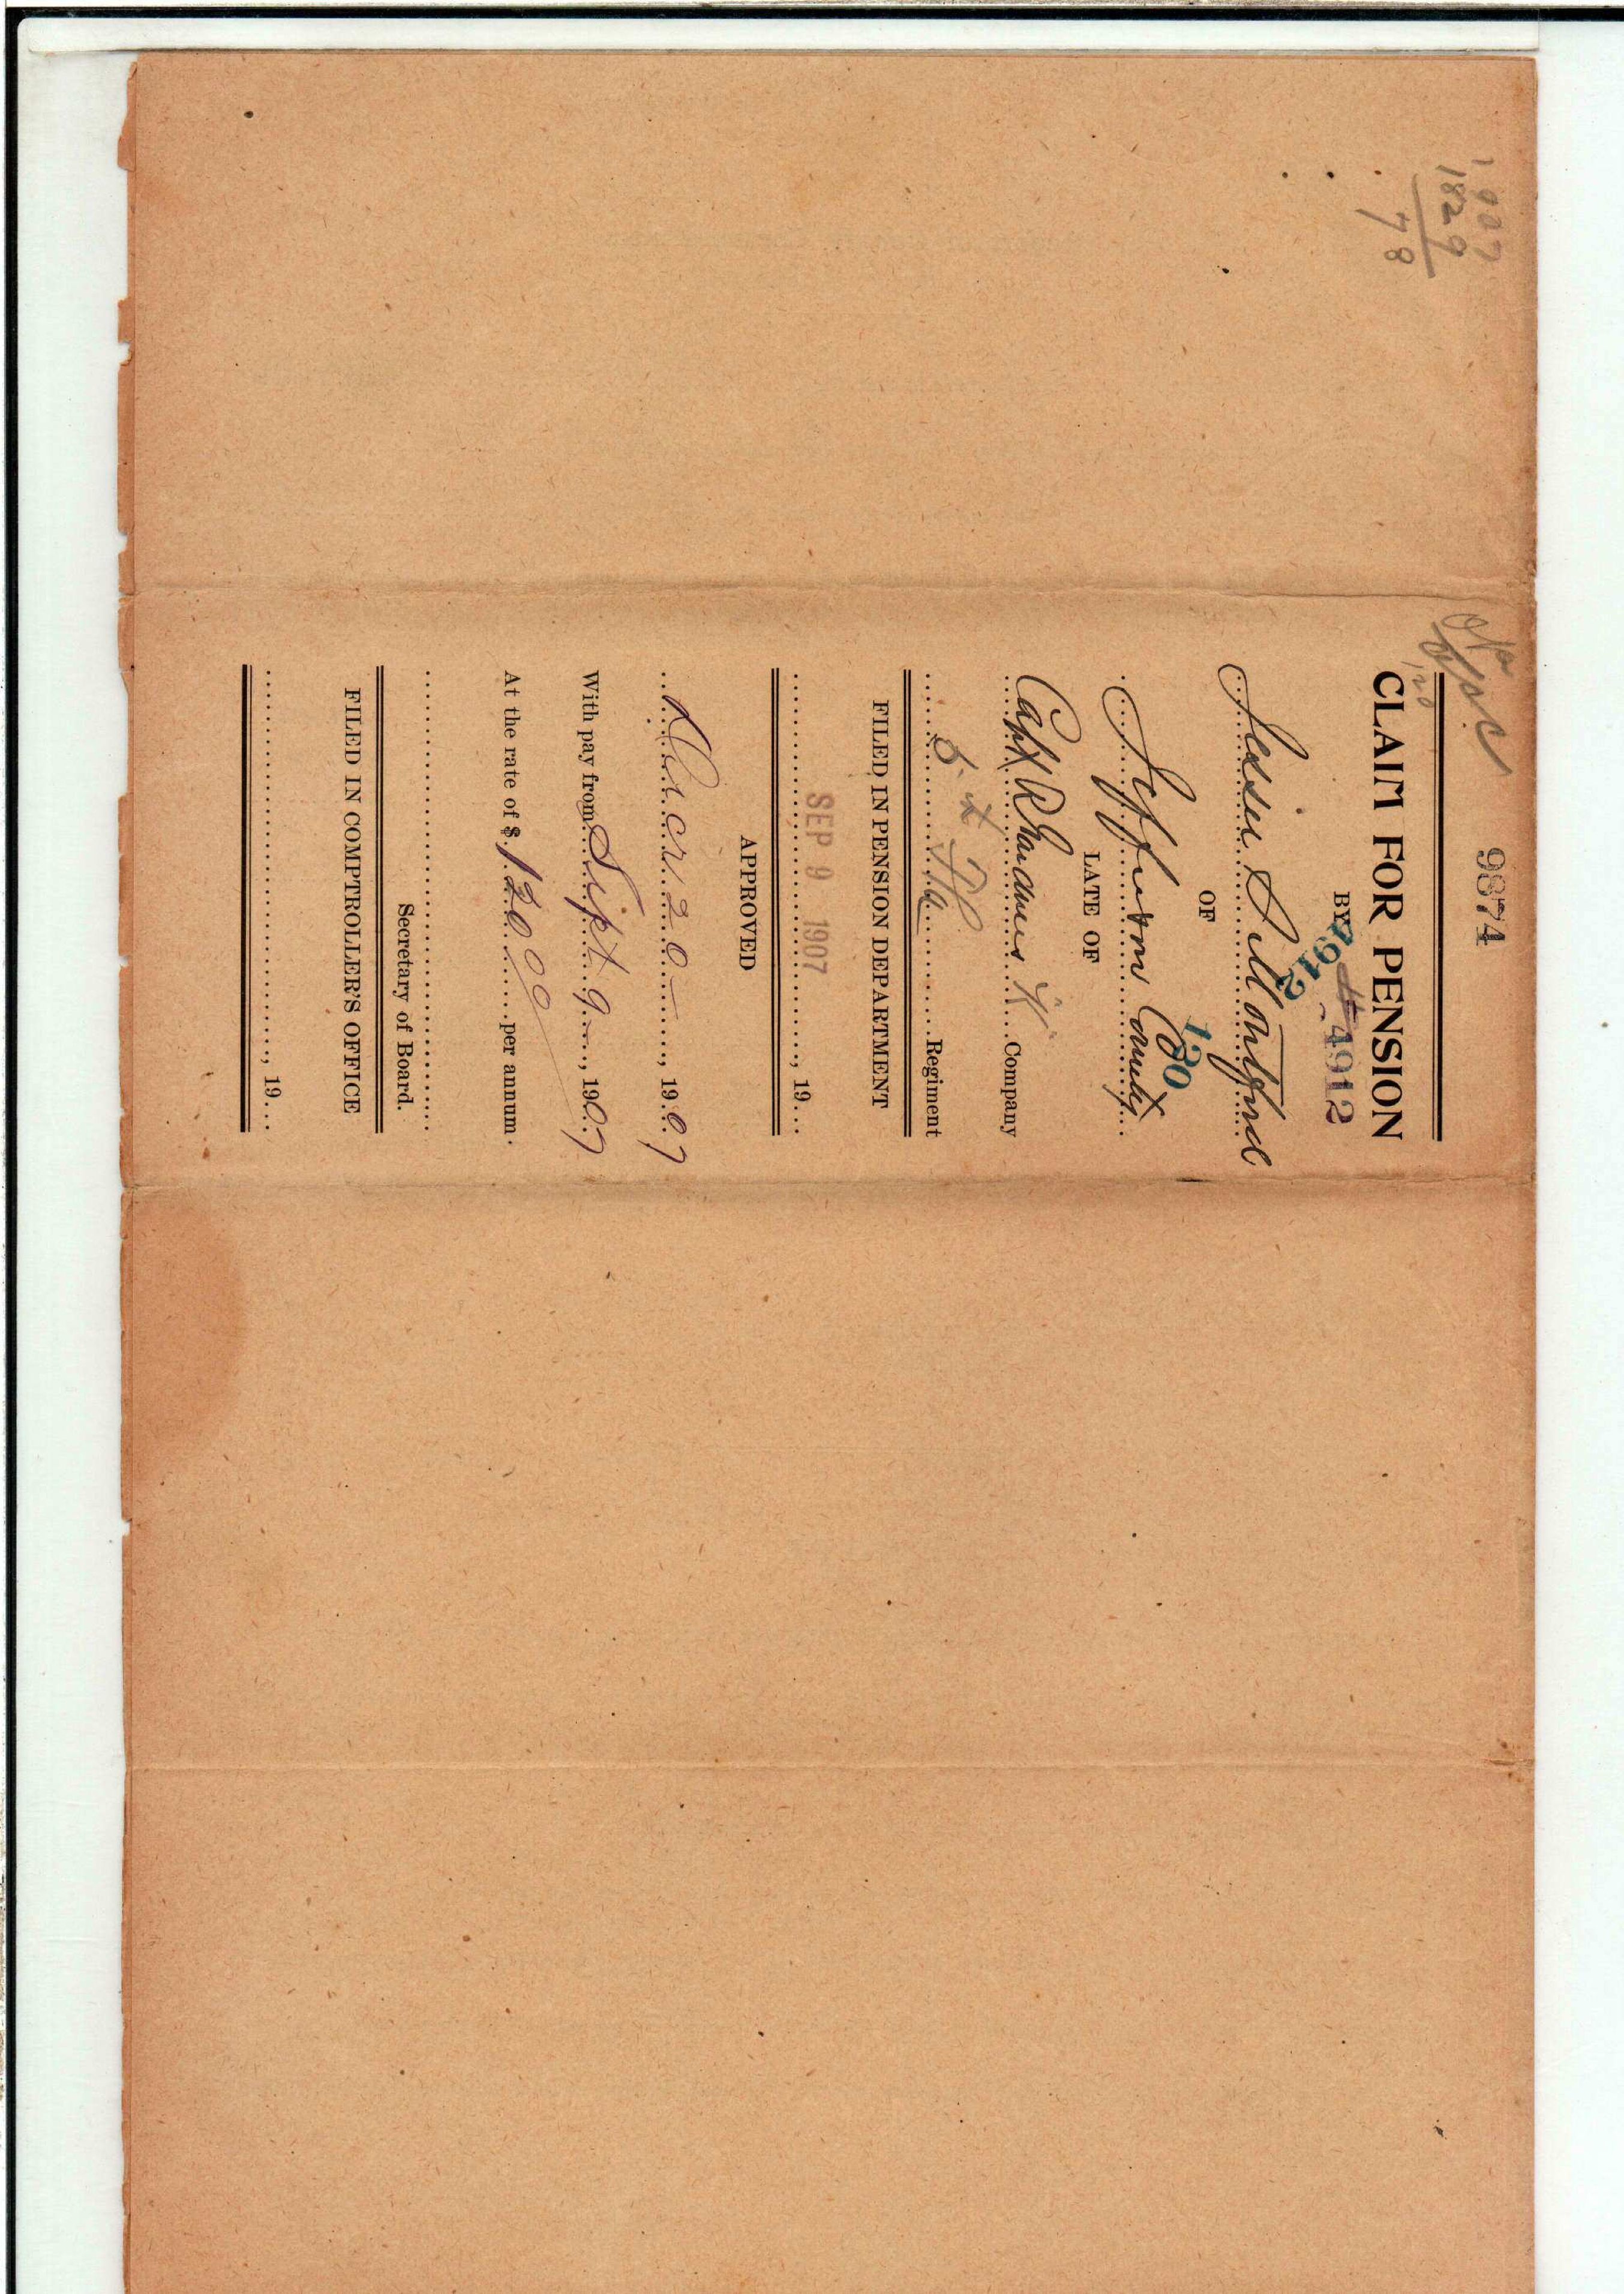 1907
1829
78
9874
CLAIM FOR PENSION
BY
4912
4912
Jesse
OF
120
Jefferson County
LATE OF
Capt K. Company
5 Fla Regiment
FILED IN PENSION DEPARTMENT
SEP 9 1907
......, 19...
APPROVED
20, 1907
With pay from Sept 9, 1907
At the rate of $ 120 00 per annum.
Secretary of Board.
FILED IN COMPTROLLER'S OFFICE
......, 19...